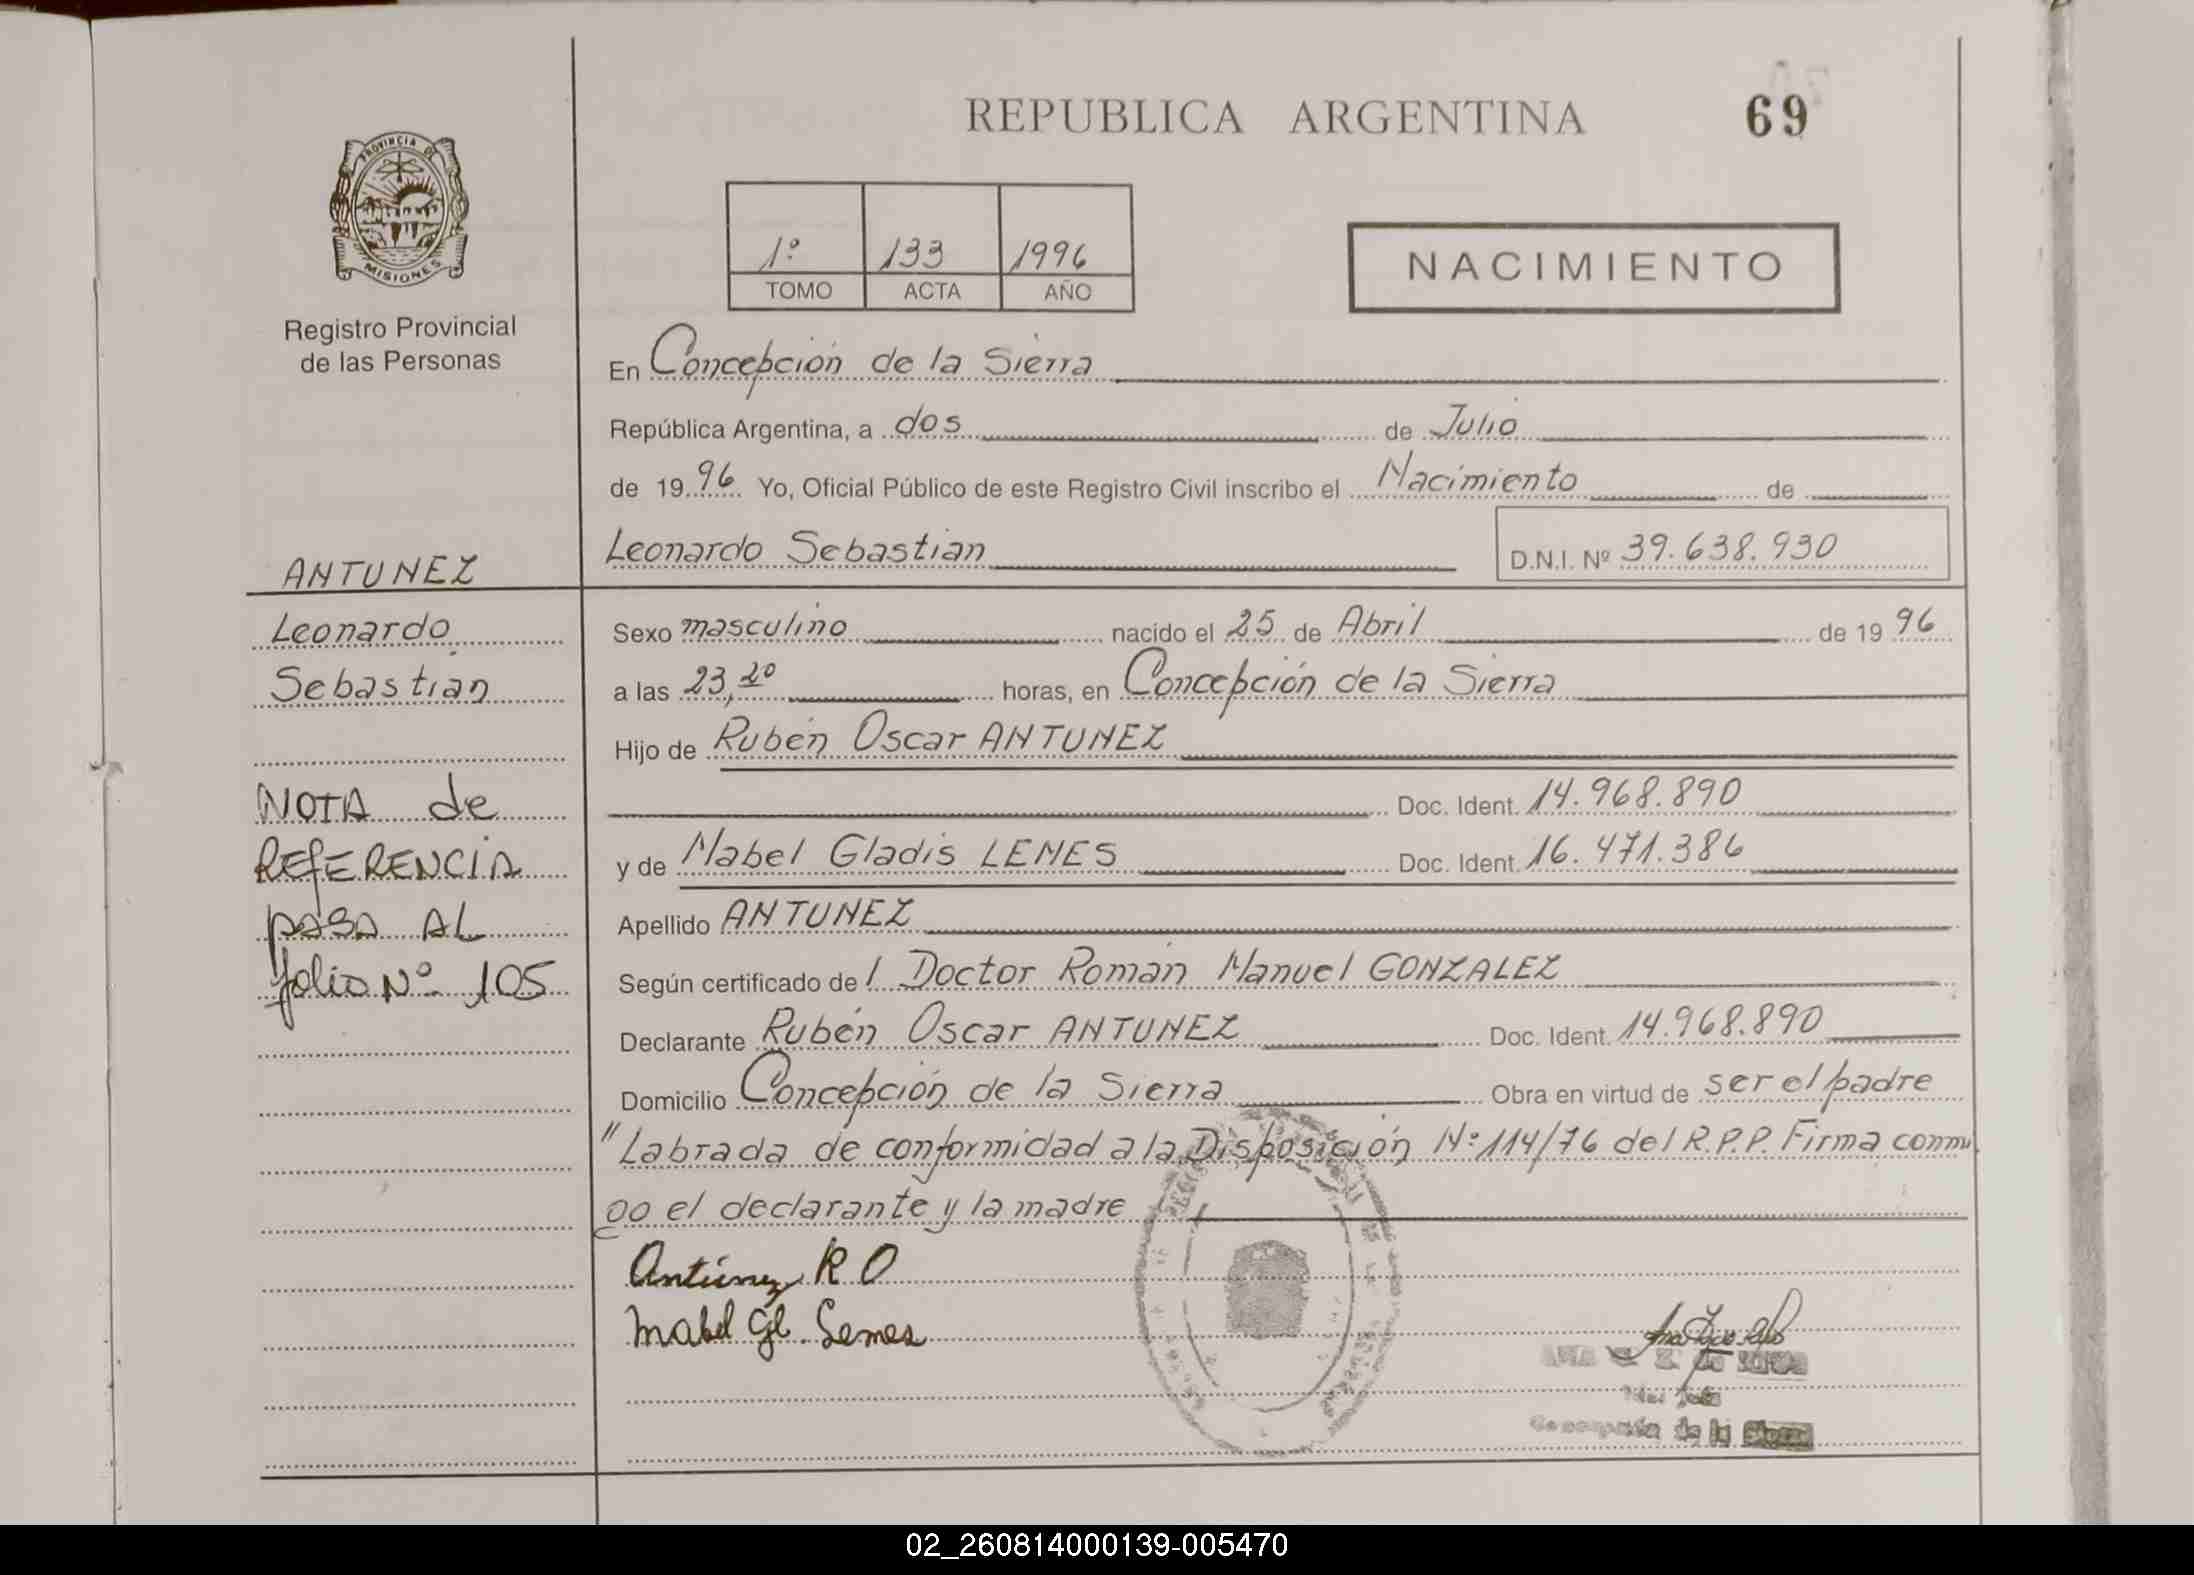 REPUBLICA ARGENTINA 69
PROVINCIA DE
MISIONES
Registro Provincial
de las Personas
1º 133 1996
TOMO ACTA AÑO
NACIMIENTO
En Concepción de la Sierra
República Argentina, a dos de Julio
de 19 96 Yo, Oficial Público de este Registro Civil inscribo el Nacimiento de
Leonardo Sebastian D.N.I. Nº 39.638.930
ANTUNEZ
Leonardo
Sebastian
NOTA de
REFERENCIA
PASA AL
folio Nº 105
Sexo masculino nacido el 25 de Abril de 19 96
a las 23,20 horas, en Concepción de la Sierra
Hijo de Rubén Oscar ANTUNEZ
Doc. Ident. 14.968.890
y de Mabel Gladis LEMES Doc. Ident. 16.471.386
Apellido ANTUNEZ
Según certificado de l Doctor Román Manuel GONZALEZ
Declarante Rubén Oscar ANTUNEZ Doc. Ident. 14.968.890
Domicilio Concepción de la Sierra Obra en virtud de ser el padre
"Labrada de conformidad a la Disposición Nº 114/76 del R.P.P. Firma conmi
go el declarante y la madre
Antúnez R O
Mabel Gl. Lemes
Concepción de la Sierra
02_260814000139-005470